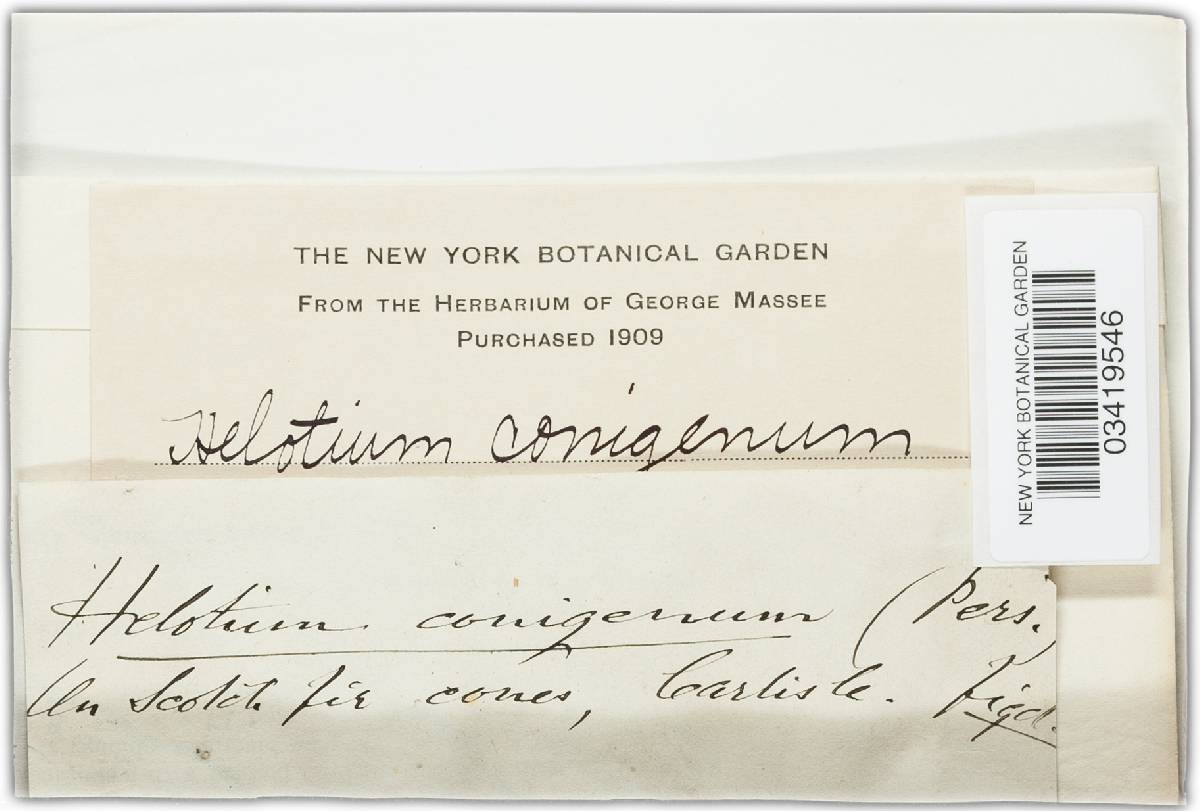 THE NEW YORK BOTANICAL GARDEN
FROM THE HERBARIUM OF GEORGE MASSEE
PURCHASED 1909
Helotium conigenum
NEW YORK BOTANICAL GARDEN
03419546
Helotium conigenum (Pers.)
On Scotch fir cones, Carlisle. figd.